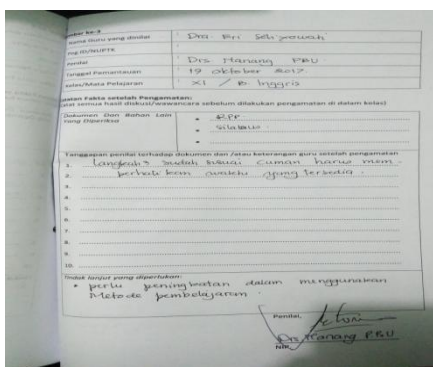 Nama Guru yang dinilai : Dra. Sri Setiyowati
NIP/NUPTK :
Penilai : Drs Hanang PBU
Tanggal Pemantauan : 19 oktober 2017
Kelas/Mata Pelajaran : XI / B. Inggris
Catatan Fakta setelah Pengamatan:
(catat semua hasil diskusi/wawancara sebelum dilakukan pengamatan di dalam kelas)
Dokumen Dan Bahan Lain
Yang Diperiksa
• RPP
• Silabus
•
Tanggapan penilai terhadap dokumen dan /atau keterangan guru setelah pengamatan
1. Langkah2 sudah sesuai cuman harus mem-
2. perhatikan waktu yang tersedia.
3.
4.
5.
6.
7.
8.
9.
10.
Tindak lanjut yang diperlukan:
• perlu peningkatan dalam menggunakan
Metode pembelajaran.
Penilai,
Drs Hanang PBU
NIP.